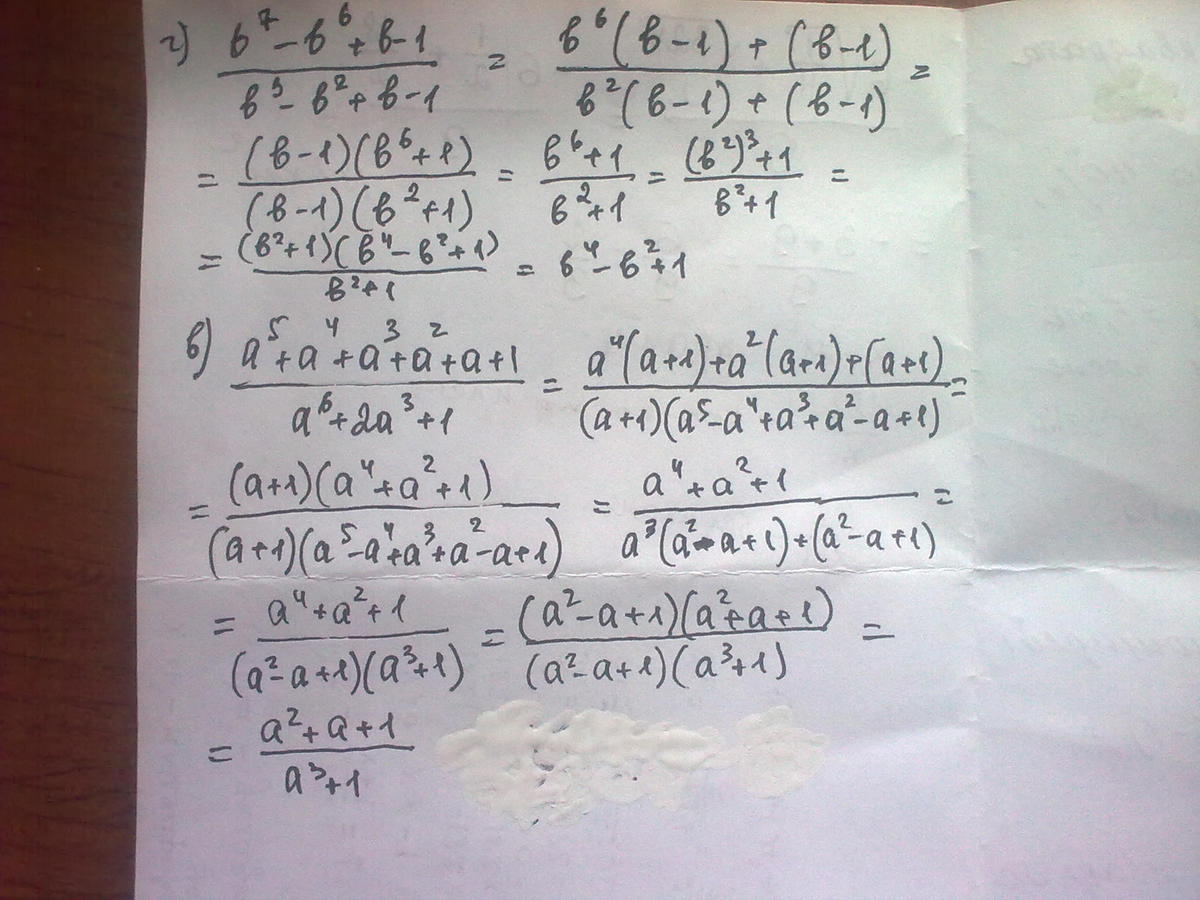 г) (b⁷-b⁶+b-1)/(b³-b²+b-1) = (b⁶(b-1)+(b-1))/(b²(b-1)+(b-1)) =
= ((b-1)(b⁶+1))/((b-1)(b²+1)) = (b⁶+1)/(b²+1) = ((b²)³+1)/(b²+1) =
= ((b²+1)(b⁴-b²+1))/(b²+1) = b⁴-b²+1
в) (a⁵+a⁴+a³+a²+a+1)/(a⁶+2a³+1) = (a⁴(a+1)+a²(a+1)+(a+1))/((a+1)(a⁵-a⁴+a³+a²-a+1)) =
= ((a+1)(a⁴+a²+1))/((a+1)(a⁵-a⁴+a³+a²-a+1)) = (a⁴+a²+1)/(a³(a²-a+1)+(a²-a+1)) =
= (a⁴+a²+1)/((a²-a+1)(a³+1)) = ((a²-a+1)(a²+a+1))/((a²-a+1)(a³+1)) =
= (a²+a+1)/(a³+1)